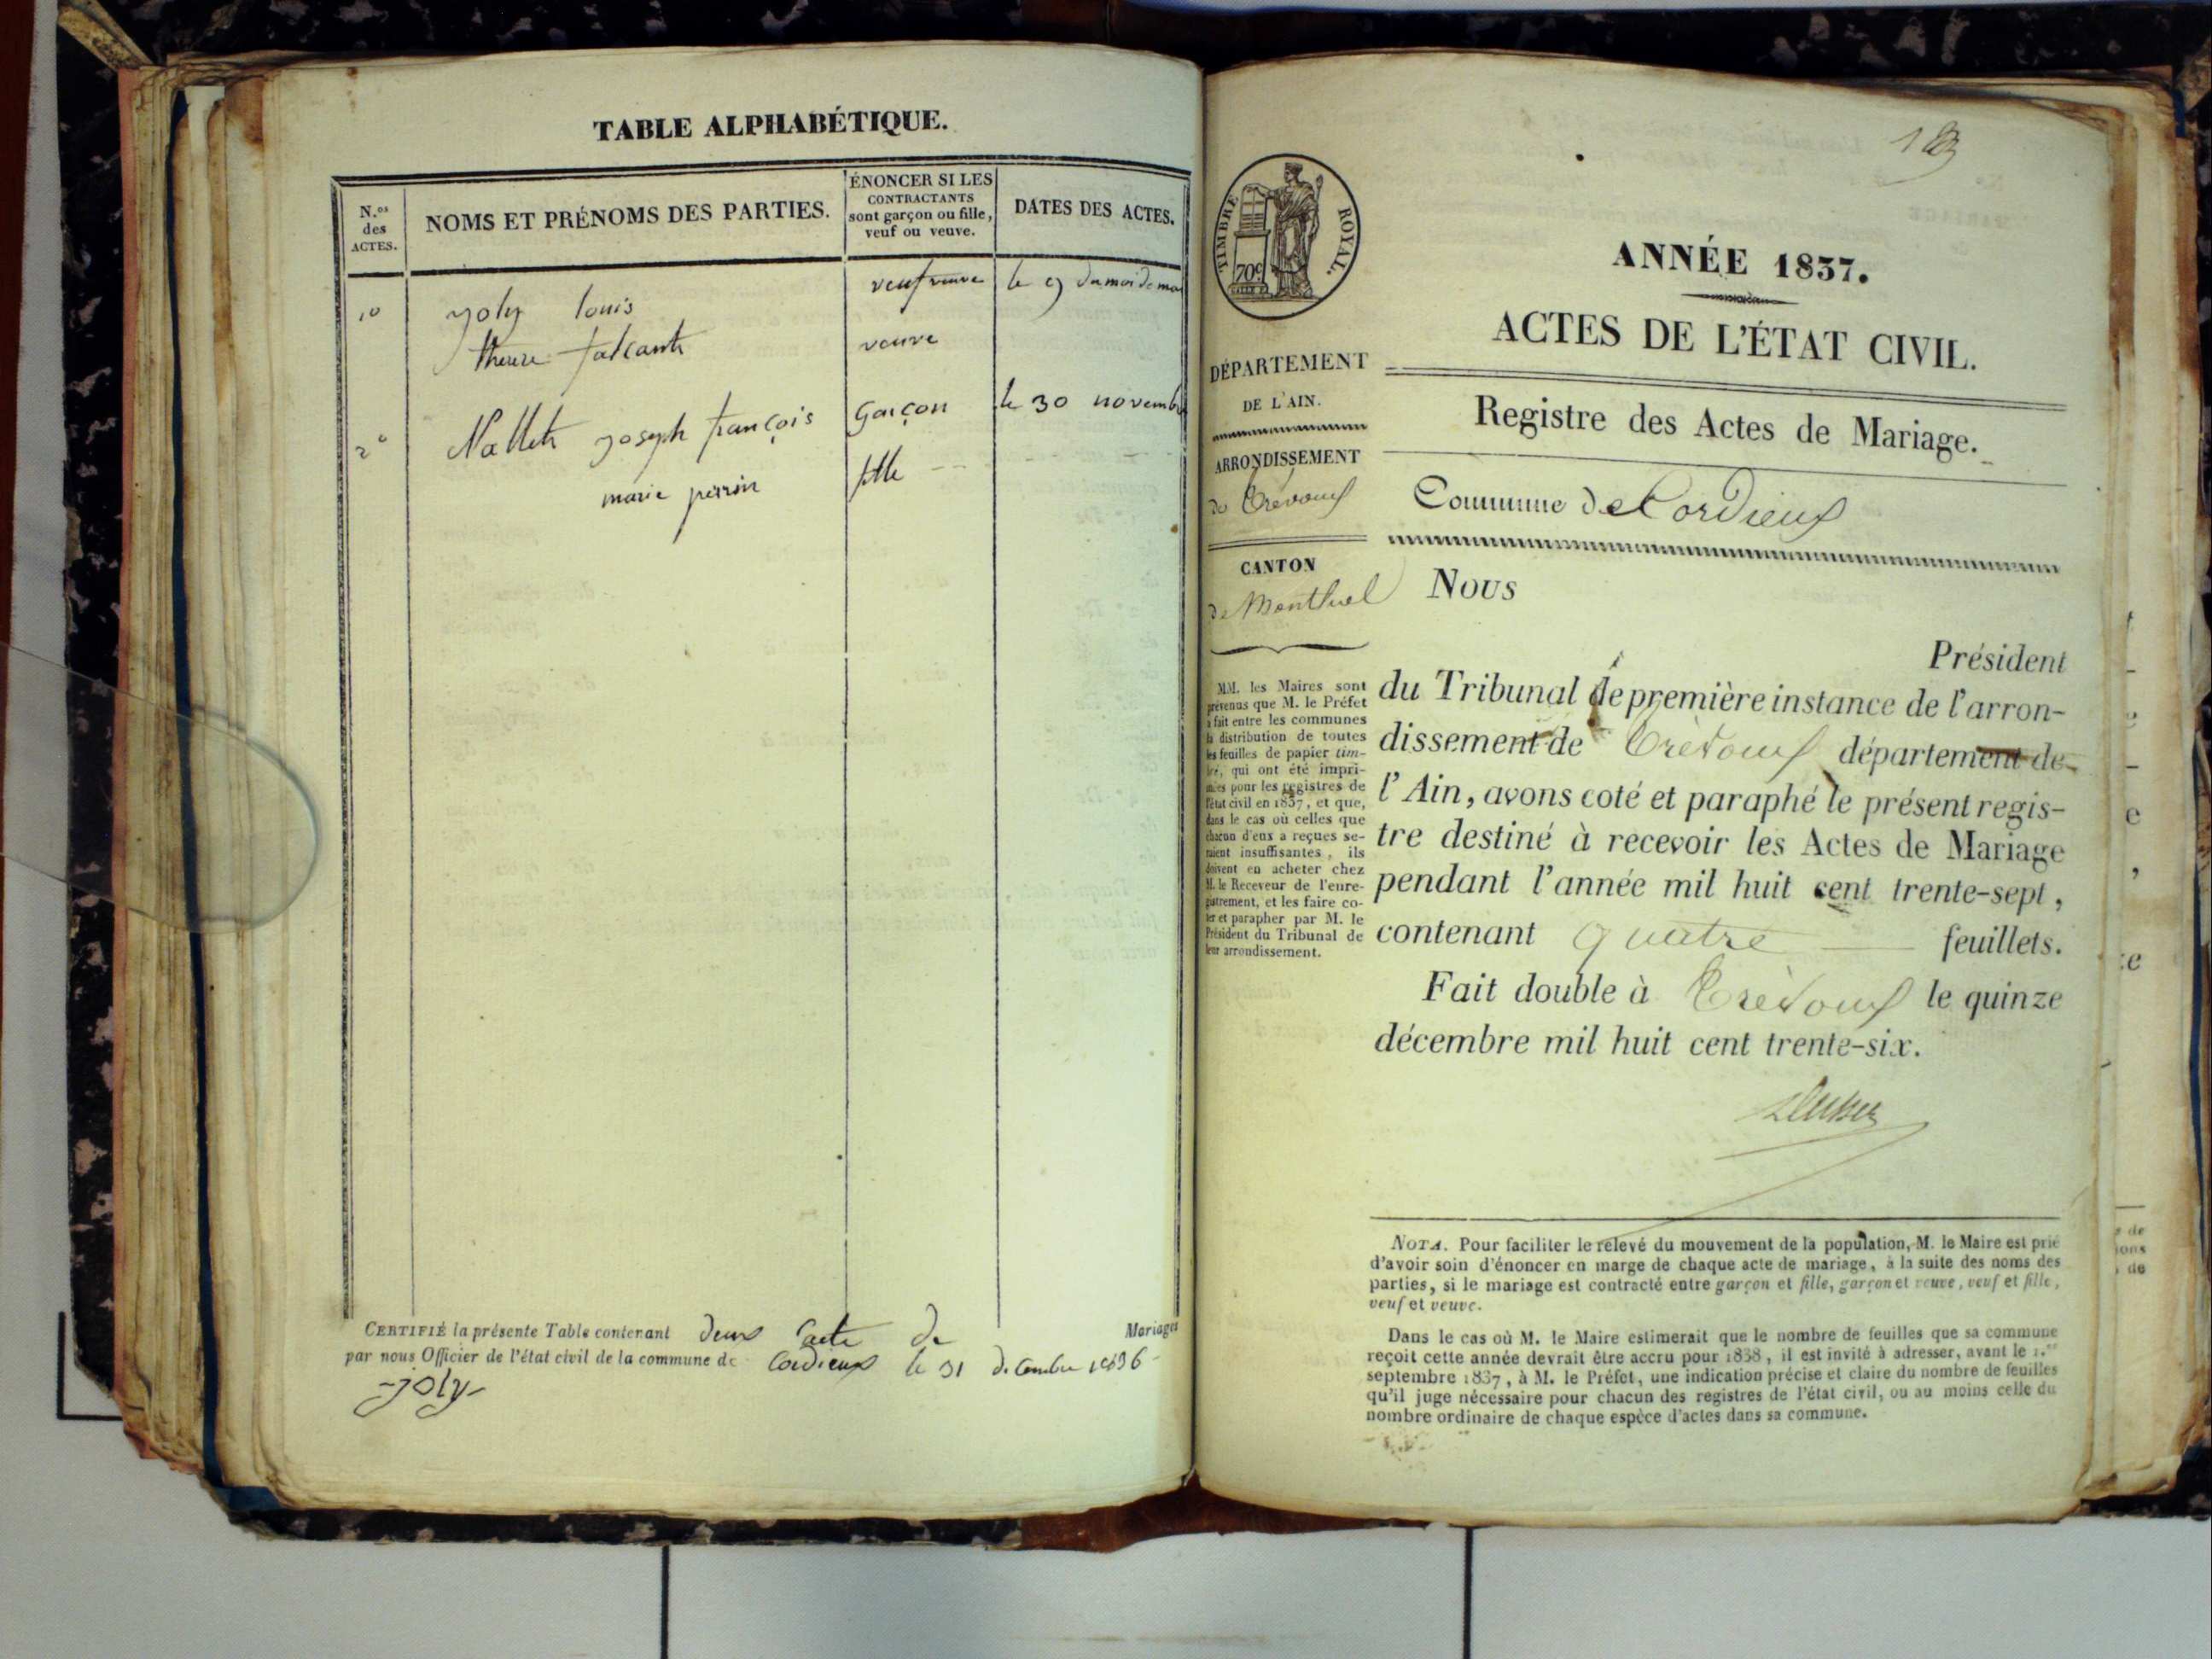 TABLE ALPHABÉTIQUE.
N.os des ACTES.
NOMS ET PRÉNOMS DES PARTIES.
ÉNONCER SI LES
CONTRACTANTS
sont garçon ou fille,
veuf ou veuve.
DATES DES ACTES.
1o joly louis
le 9 du moi de mai
veuve
2o Nallet joseph françois garçon le 30 novembre
marie perrin fille
CERTIFIÉ la présente Table contenant deux acte de Mariages
par nous Officier de l'état civil de la commune de Cordieux le 31 décembre 1836
joly
TIMBRE ROYAL.
70c
DÉPARTEMENT
DE L'AIN.
ARRONDISSEMENT
de Trévoux
CANTON
de Montluel
MM. les Maires sont
prévenus que M. le Préfet
a fait entre les communes
la distribution de toutes
les feuilles de papier tim-
bré, qui ont été impri-
mées pour les registres de
l'état civil en 1837, et que,
dans le cas où celles que
chacun d'eux a reçues se-
raient insuffisantes, ils
doivent en acheter chez
M. le Receveur de l'enre-
gistrement, et les faire co-
ter et parapher par M. le
Président du Tribunal de
leur arrondissement.
ANNÉE 1837.
ACTES DE L'ÉTAT CIVIL.
Registre des Actes de Mariage.
Commune de Cordieux
Nous
Président
du Tribunal de première instance de l'arron-
dissement de Trévoux département de
l'Ain, avons coté et paraphé le présent regis-
tre destiné à recevoir les Actes de Mariage
pendant l'année mil huit cent trente-sept,
contenant quatre feuillets.
Fait double à Trévoux le quinze
décembre mil huit cent trente-six.
NOTA. Pour faciliter le relevé du mouvement de la population, M. le Maire est prié
d'avoir soin d'énoncer en marge de chaque acte de mariage, à la suite des noms des
parties, si le mariage est contracté entre garçon et fille, garçon et veuve, veuf et fille,
veuf et veuve.
Dans le cas où M. le Maire estimerait que le nombre de feuilles que sa commune
reçoit cette année devrait être accru pour 1838, il est invité à adresser, avant le 1.er
septembre 1837, à M. le Préfet, une indication précise et claire du nombre de feuilles
qu'il juge nécessaire pour chacun des registres de l'état civil, ou au moins celle du
nombre ordinaire de chaque espèce d'actes dans sa commune.